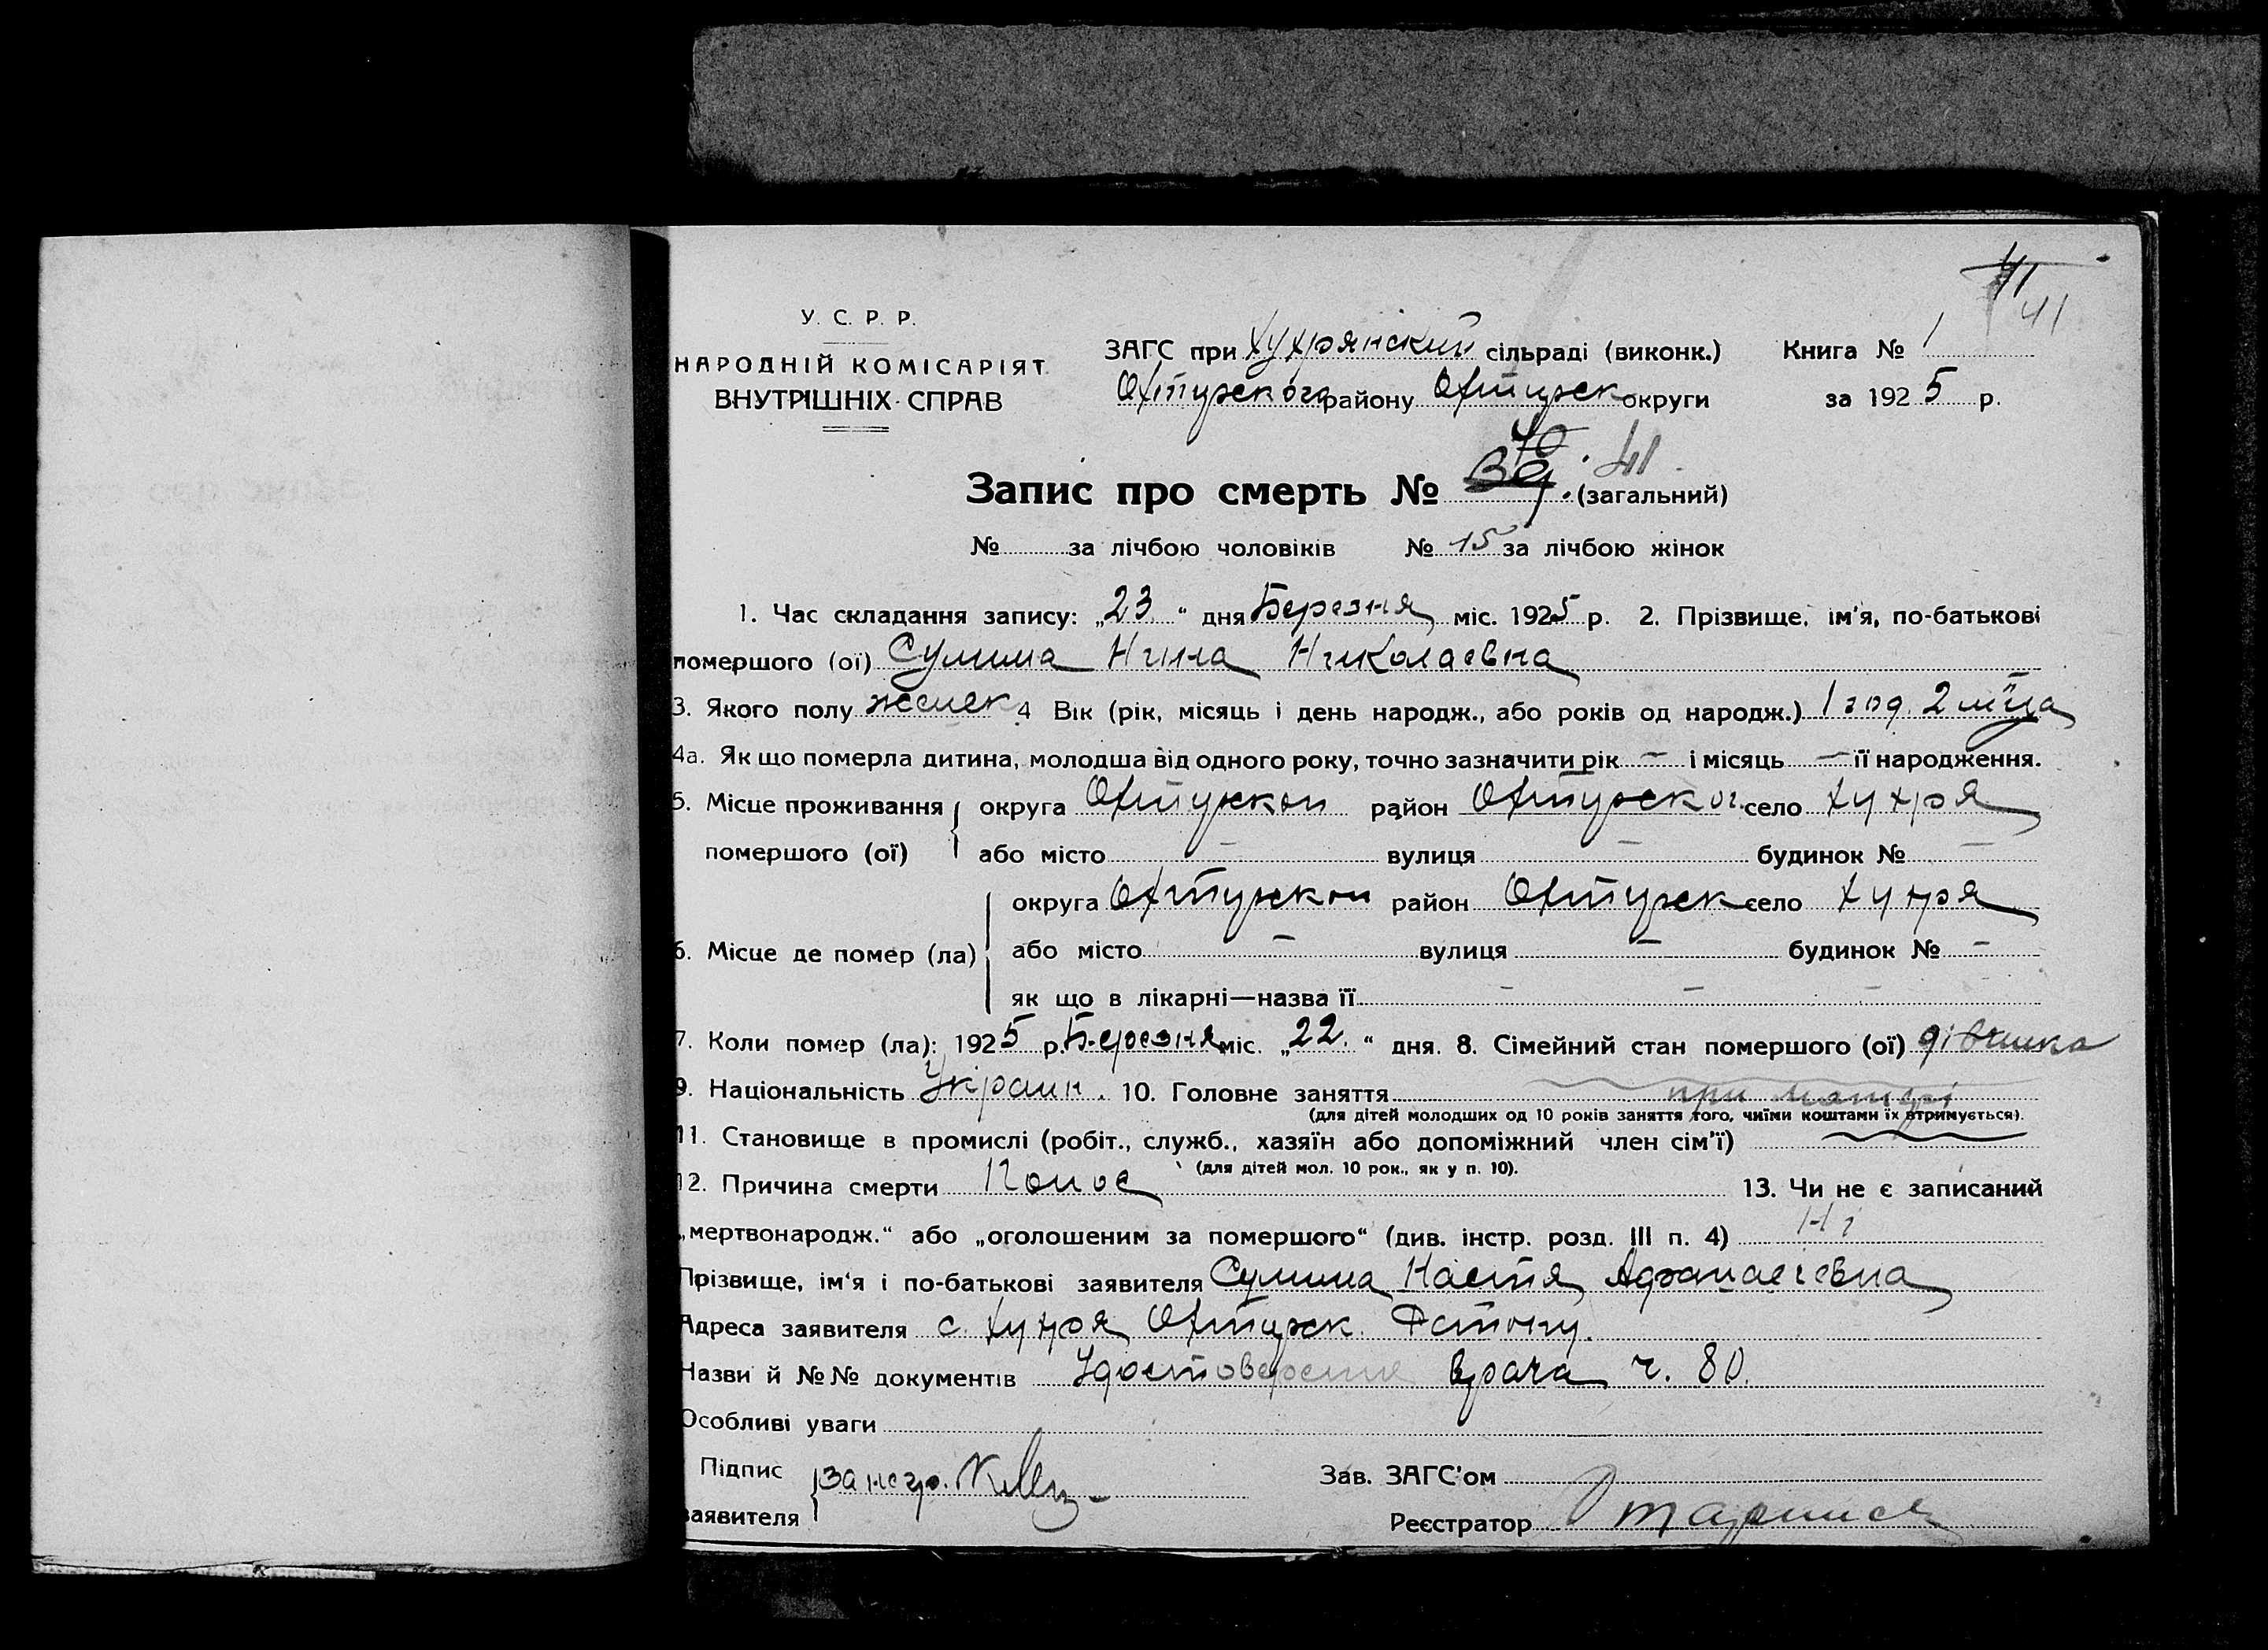 41
41
У. С. Р. Р.
НАРОДНІЙ КОМІСАРІЯТ
ВНУТРІШНІХ СПРАВ
ЗАГС при Хухрянский сільраді (виконк.) Книга № 1
Охтирского району Охтирск округи за 1925 р.
40. 41.
Запис про смерть № 39. (загальний)
№ за лічбою чоловіків № 15 за лічбою жінок
1. Час складання запису: „23“ дня Березня міс. 1925 р. 2. Прізвище, ім'я, по-батькові
помершого (ої) Сумина Нина Николаевна
3. Якого полу женск 4 Вік (рік, місяць і день народж., або років од народж.) 1 год. 2 м-ца
4а. Як що померла дитина, молодша від одного року, точно зазначити рік — і місяць — її народження.
5. Місце проживання округа Охтирскои район Охтирског. село Хухря
помершого (ої) або місто — вулиця — будинок № —
округа Охтирскои район Охтирск село Хухря
6. Місце де помер (ла) або місто — вулиця — будинок № —
як що в лікарні—назва її — — —
7. Коли помер (ла): 1925 р. Березня міс. „22.“ дня. 8. Сімейний стан помершого (ої) дівчинка
9. Національність Украин. 10. Головне заняття при матері
(для дітей молодших од 10 років заняття того, чиїми коштами їх втримується).
11. Становище в промислі (робіт., служб., хазяїн або допоміжний член сім'ї)
(для дітей мол. 10 рок., як у п. 10).
12. Причина смерти Понос 13. Чи не є записаний
„мертвонародж.“ або „оголошеним за помершого“ (див. інстр. розд. III п. 4) Ні
Прізвище, ім'я і по-батькові заявителя Сумина Настя Афанасиевна
Адреса заявителя с. Хухря Охтирск.
Назви й №№ документів Удостоверение врача ч. 80.
Особливі уваги
Підпис За негр.
заявителя
Зав. ЗАГС'ом
Реєстратор